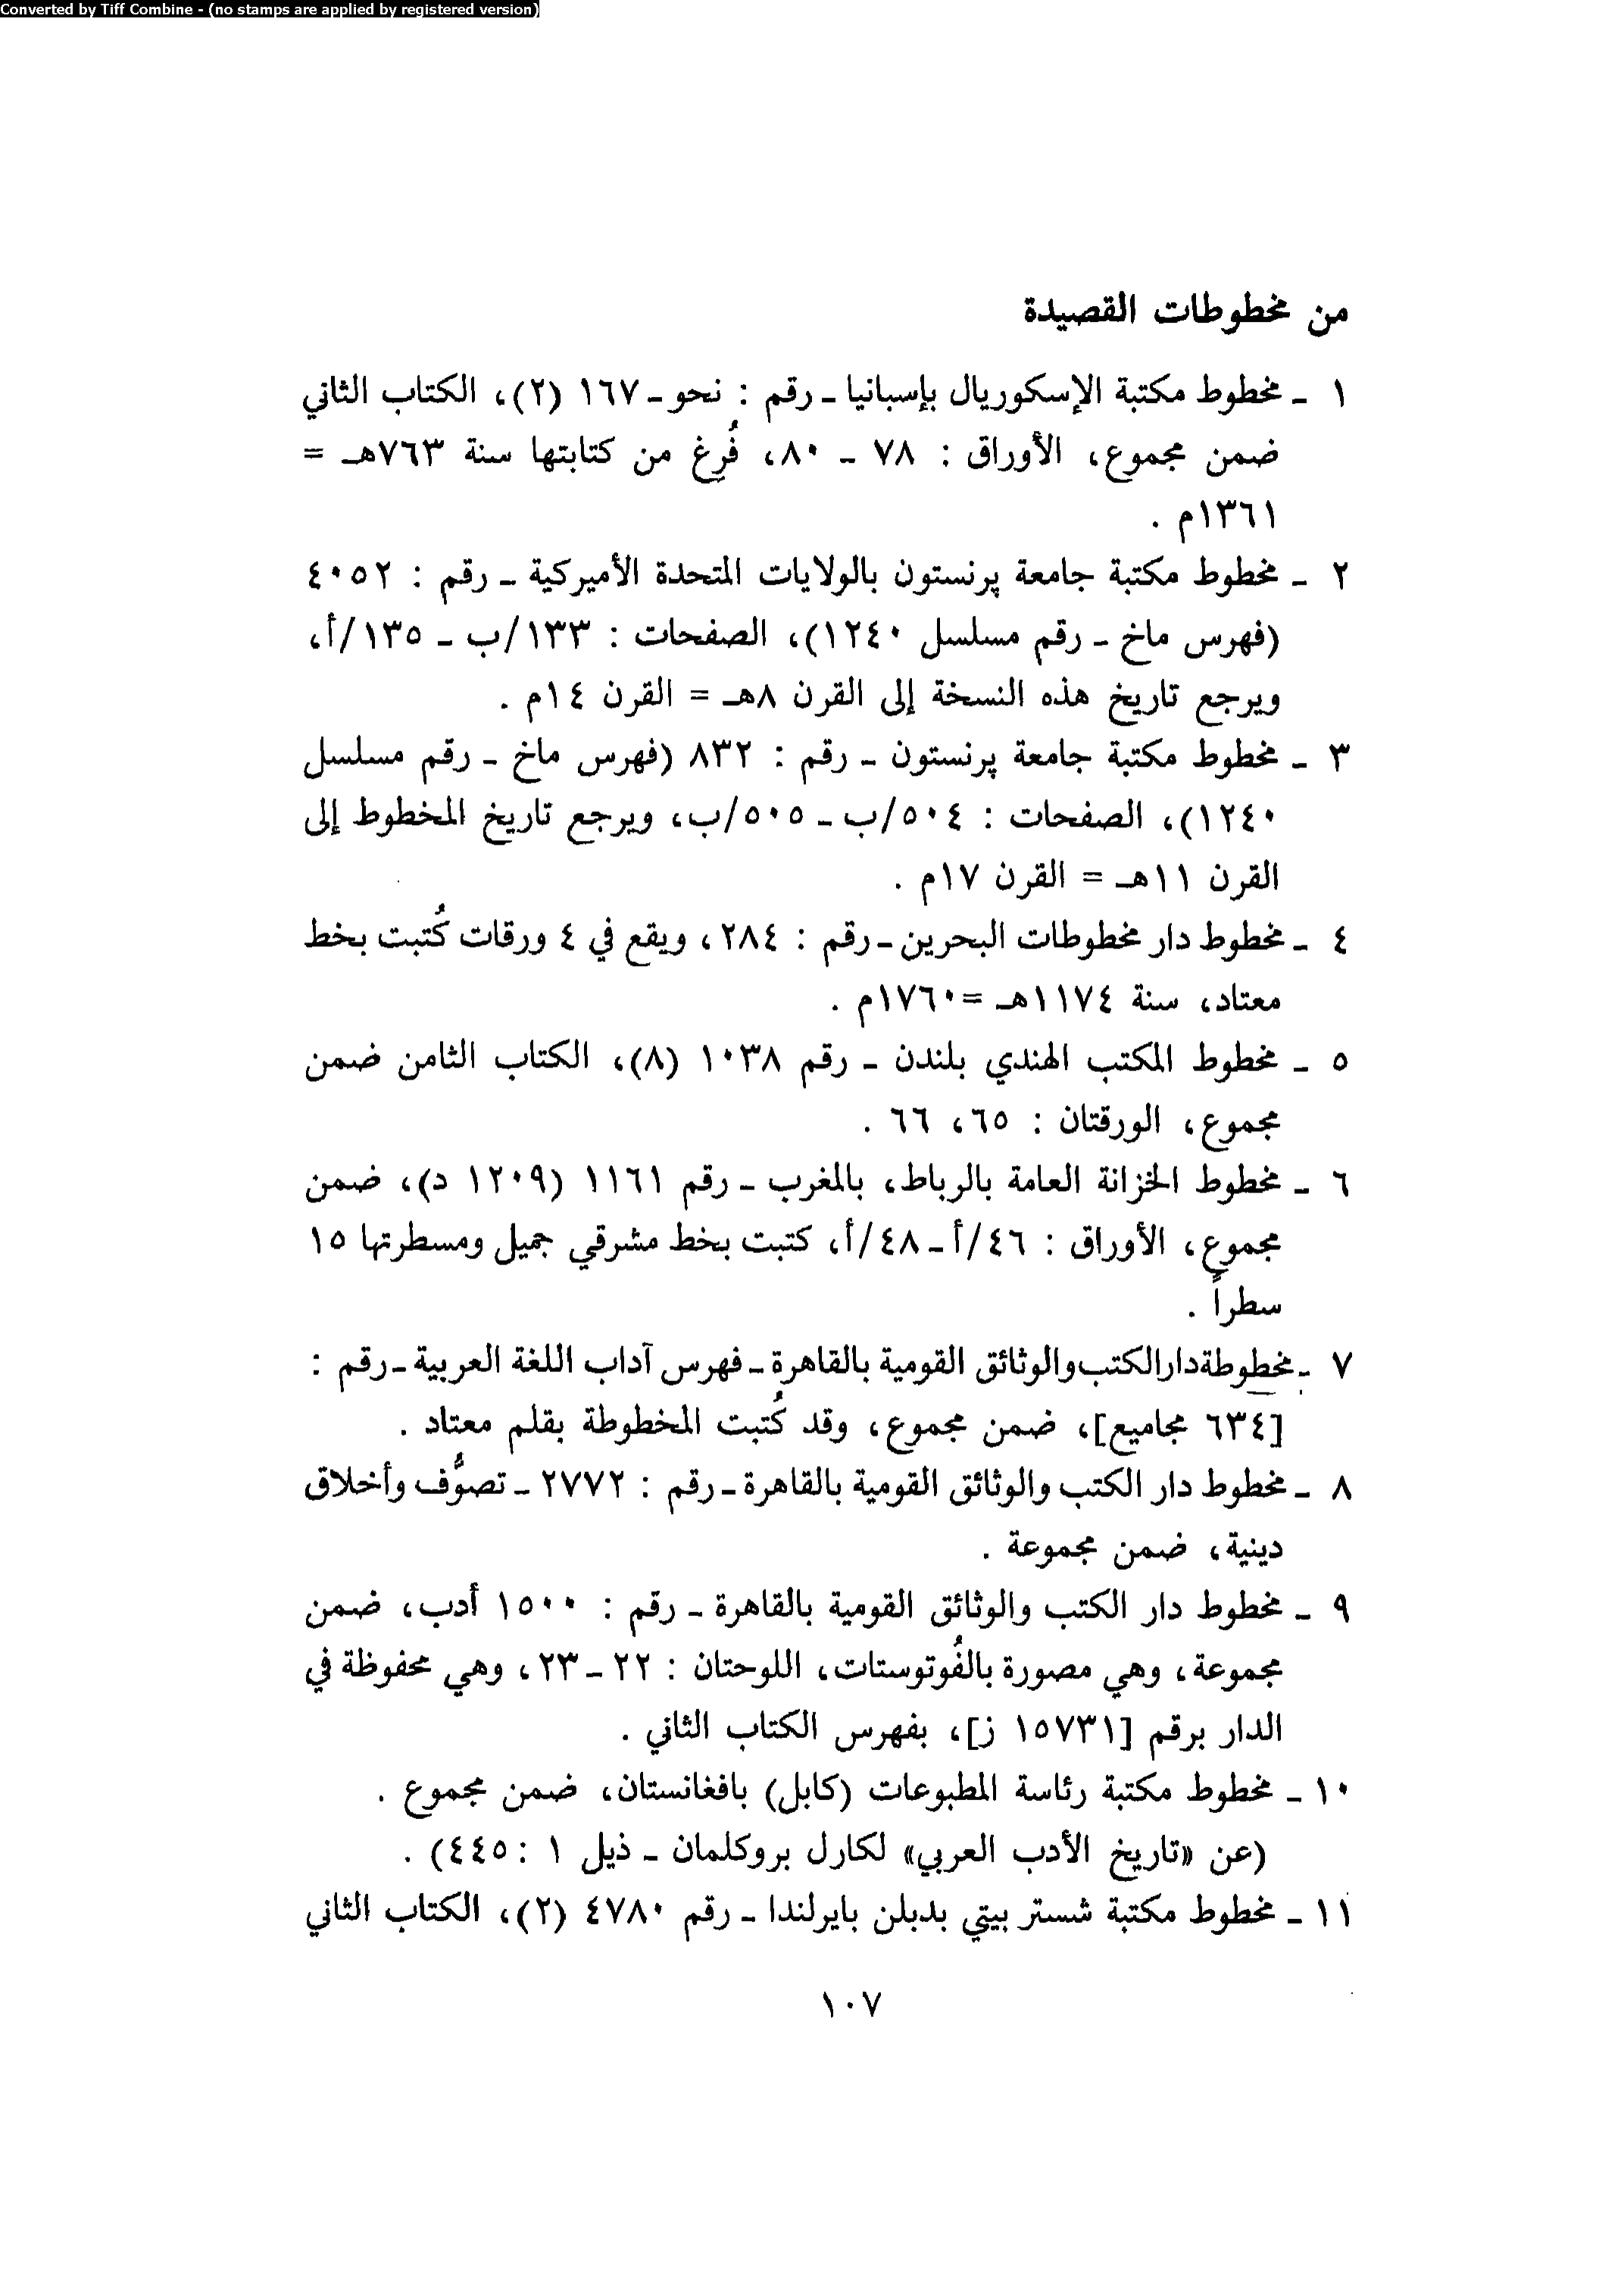 Converted by Tiff Combine - (no stamps are applied by registered version)
من مخطوطات القصيدة
١ ـ مخطوط مكتبة الإسكوريال بإسبانيا ـ رقم : نحو ـ ١٦٧ (٢)، الكتاب الثاني
ضمن مجموع، الأوراق : ٧٨ ـ ٨٠، فُرِغ من كتابتها سنة ٧٦٣هـ =
١٣٦١م .
٢ ـ مخطوط مكتبة جامعة پرنستون بالولايات المتحدة الأميركية ـ رقم : ٤٠٥٢
(فهرس ماخ ـ رقم مسلسل ١٢٤٠)، الصفحات : ١٣٣/ب ـ ١٣٥/أ،
ويرجع تاريخ هذه النسخة إلى القرن ٨هـ = القرن ١٤م .
٣ ـ مخطوط مكتبة جامعة پرنستون ـ رقم : ٨٣٢ (فهرس ماخ ـ رقم مسلسل
١٢٤٠)، الصفحات : ٥٠٤/ب ـ ٥٠٥/ب، ويرجع تاريخ المخطوط إلى
القرن ١١هـ = القرن ١٧م .
٤ ـ مخطوط دار مخطوطات البحرين ـ رقم : ٢٨٤، ويقع في ٤ ورقات كُتبت بخط
معتاد، سنة ١١٧٤هـ = ١٧٦٠م .
٥ ـ مخطوط المكتب الهندي بلندن ـ رقم ١٠٣٨ (٨)، الكتاب الثامن ضمن
مجموع، الورقتان : ٦٥، ٦٦ .
٦ ـ مخطوط الخزانة العامة بالرباط، بالمغرب ـ رقم ١١٦١ (١٢٠٩ د)، ضمن
مجموع، الأوراق : ٤٦/أ ـ ٤٨/أ، كتبت بخط مشرقي جميل ومسطرتها ١٥
سطراً .
٧ ـ مخطوطة دار الكتب والوثائق القومية بالقاهرة ـ فهرس آداب اللغة العربية ـ رقم :
[٦٣٤ مجاميع]، ضمن مجموع، وقد كُتبت المخطوطة بقلم معتاد .
٨ ـ مخطوط دار الكتب والوثائق القومية بالقاهرة ـ رقم : ٢٧٧٢ ـ تصوُّف وأخلاق
دينية، ضمن مجموعة .
٩ ـ مخطوط دار الكتب والوثائق القومية بالقاهرة ـ رقم : ١٥٠٠ أدب، ضمن
مجموعة، وهي مصورة بالفُوتوستات، اللوحتان : ٢٢ ـ ٢٣، وهي محفوظة في
الدار برقم [١٥٧٣١ ز]، بفهرس الكتاب الثاني .
١٠ ـ مخطوط مكتبة رئاسة المطبوعات (كابل) بافغانستان، ضمن مجموع .
(عن «تاريخ الأدب العربي» لكارل بروكلمان ـ ذيل ١ : ٤٤٥) .
١١ ـ مخطوط مكتبة شستر بيتي بدبلن بايرلندا ـ رقم ٤٧٨٠ (٢)، الكتاب الثاني
١٠٧